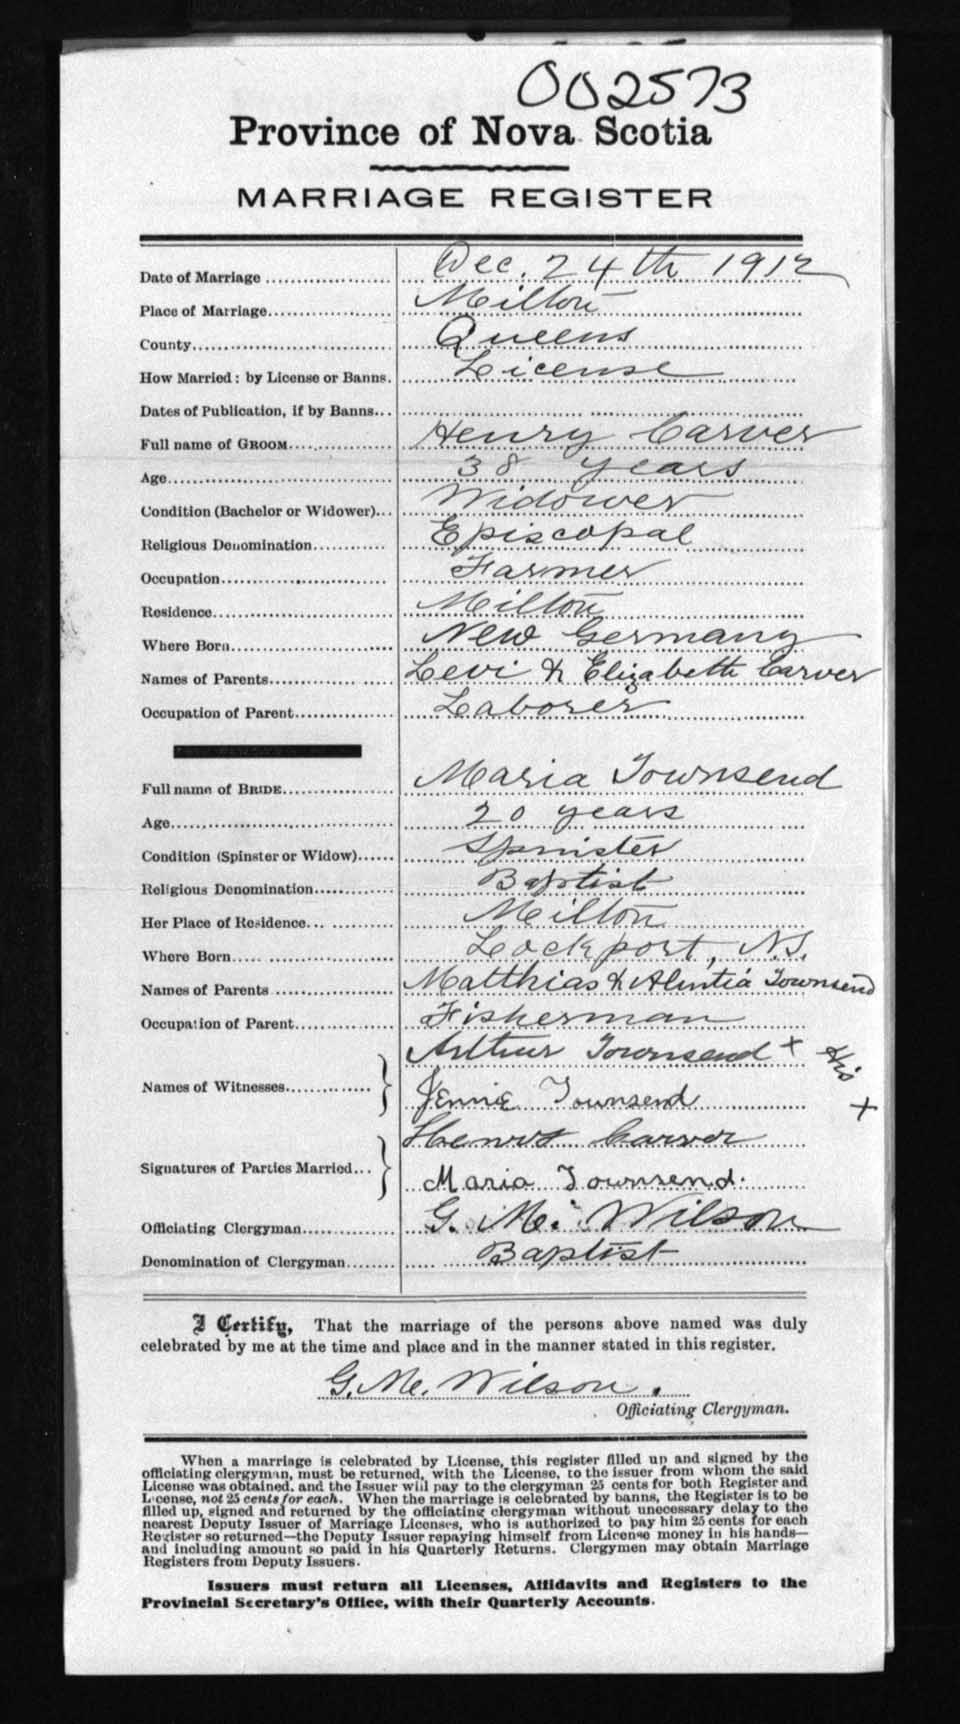 002573
Province of Nova Scotia
MARRIAGE REGISTER
Date of Marriage Dec. 24th 1912
Place of Marriage Milton
County Queens
How Married: by License or Banns. License
Dates of Publication, if by Banns
Full name of GROOM Henry Carver
Age 38 years
Condition (Bachelor or Widower) Widower
Religious Denomination Episcopal
Occupation Farmer
Residence Milton
Where Born New Germany
Names of Parents Levi & Elizabeth Carver
Occupation of Parent Laborer
Full name of BRIDE Maria Townsend
Age 20 years
Condition (Spinster or Widow) Spinster
Religious Denomination Baptist
Her Place of Residence Milton
Where Born Lockport, N.S.
Names of Parents Matthias & Townsend
Occupation of Parent Fisherman
Arthur Townsend x His
Names of Witnesses
x
Jennie Townsend
Henry Carver
Signatures of Parties Married
Maria Townsend.
Officiating Clergyman G. M. Wilson
Denomination of Clergyman Baptist
I Certify, That the marriage of the persons above named was duly
celebrated by me at the time and place and in the manner stated in this register.
G. M. Wilson.
Officiating Clergyman.
When a marriage is celebrated by License, this register filled up and signed by the
officiating clergyman, must be returned, with the License, to the issuer from whom the said
License was obtained, and the Issuer will pay to the clergyman 25 cents for both Register and
License, not 25 cents for each. When the marriage is celebrated by banns, the Register is to be
filled up, signed and returned by the officiating clergyman without unnecessary delay to the
nearest Deputy Issuer of Marriage Licenses, who is authorized to pay him 25 cents for each
Register so returned—the Deputy Issuer repaying himself from License money in his hands—
and including amount so paid in his Quarterly Returns. Clergymen may obtain Marriage
Registers from Deputy Issuers.
Issuers must return all Licenses, Affidavits and Registers to the
Provincial Secretary's Office, with their Quarterly Accounts.